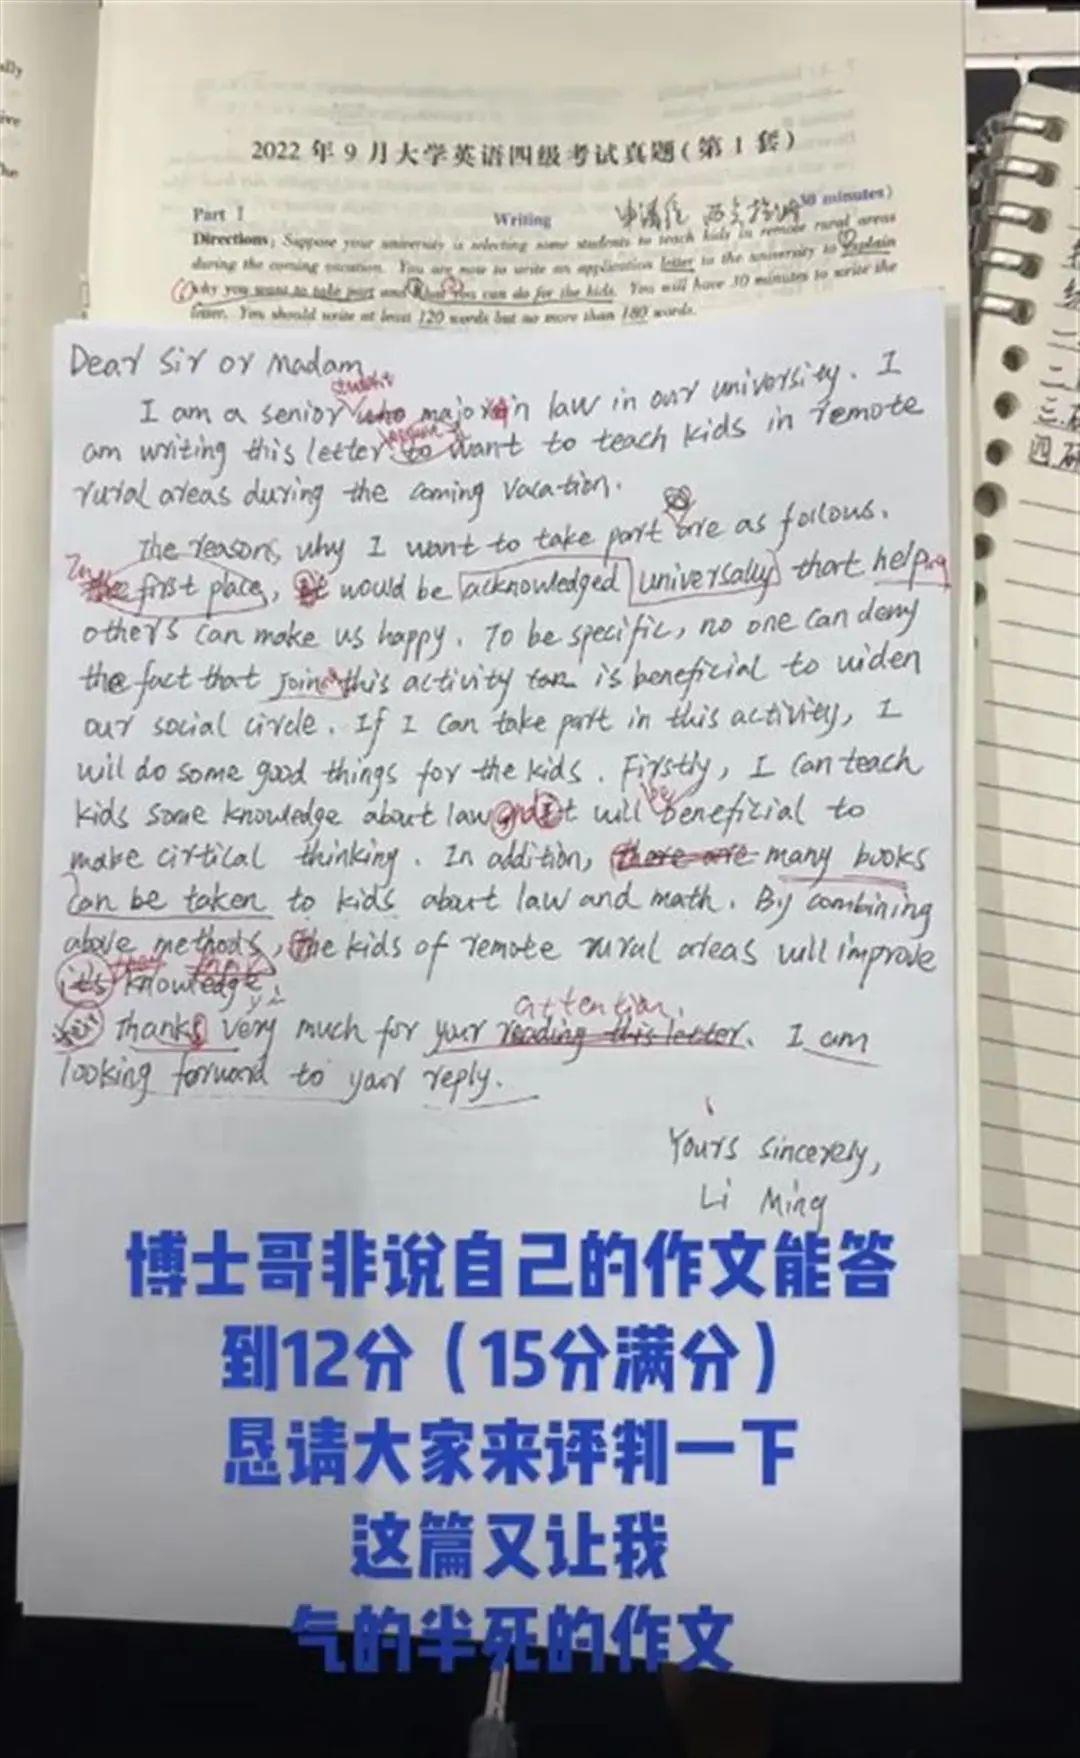 2022年9月大学英语四级考试真题(第1套)
Part I Writing 30 minutes)
Directions: Suppose your university is selecting some students to teach kids in remote rural areas
during the coming vacation. You are now to write an application letter to the university to explain
why you want to take part and what you can do for the kids. You will have 30 minutes to write the
letter. You should write at least 120 words but no more than 180 words.
Dear Sir or Madam
student
I am a senior who major in law in our university. I
am writing this letter to want to teach kids in remote
rural areas during the coming vacation.
The reasons why I want to take part are as follows.
In the first place, it would be acknowledged universally that helping
others can make us happy. To be specific, no one can deny
the fact that join this activity can is beneficial to widen
our social circle. If I can take part in this activity, I
wil do some good things for the kids. Firstly, I can teach
be
kids some knowledge about law and It will beneficial to
make cirtical thinking. In addition, there are many books
can be taken to kids about law and math. By combining
above methods, the kids of remote rural areas will improve
it's their knowledge.
attention.
Thanks very much for your reading this letter. I am
looking forward to your reply.
Yours sincerely,
Li Ming
博士哥非说自己的作文能答
到12分(15分满分)
恳请大家来评判一下
这篇又让我
气的半死的作文
ally
ive
The
一
二
三.
四.研